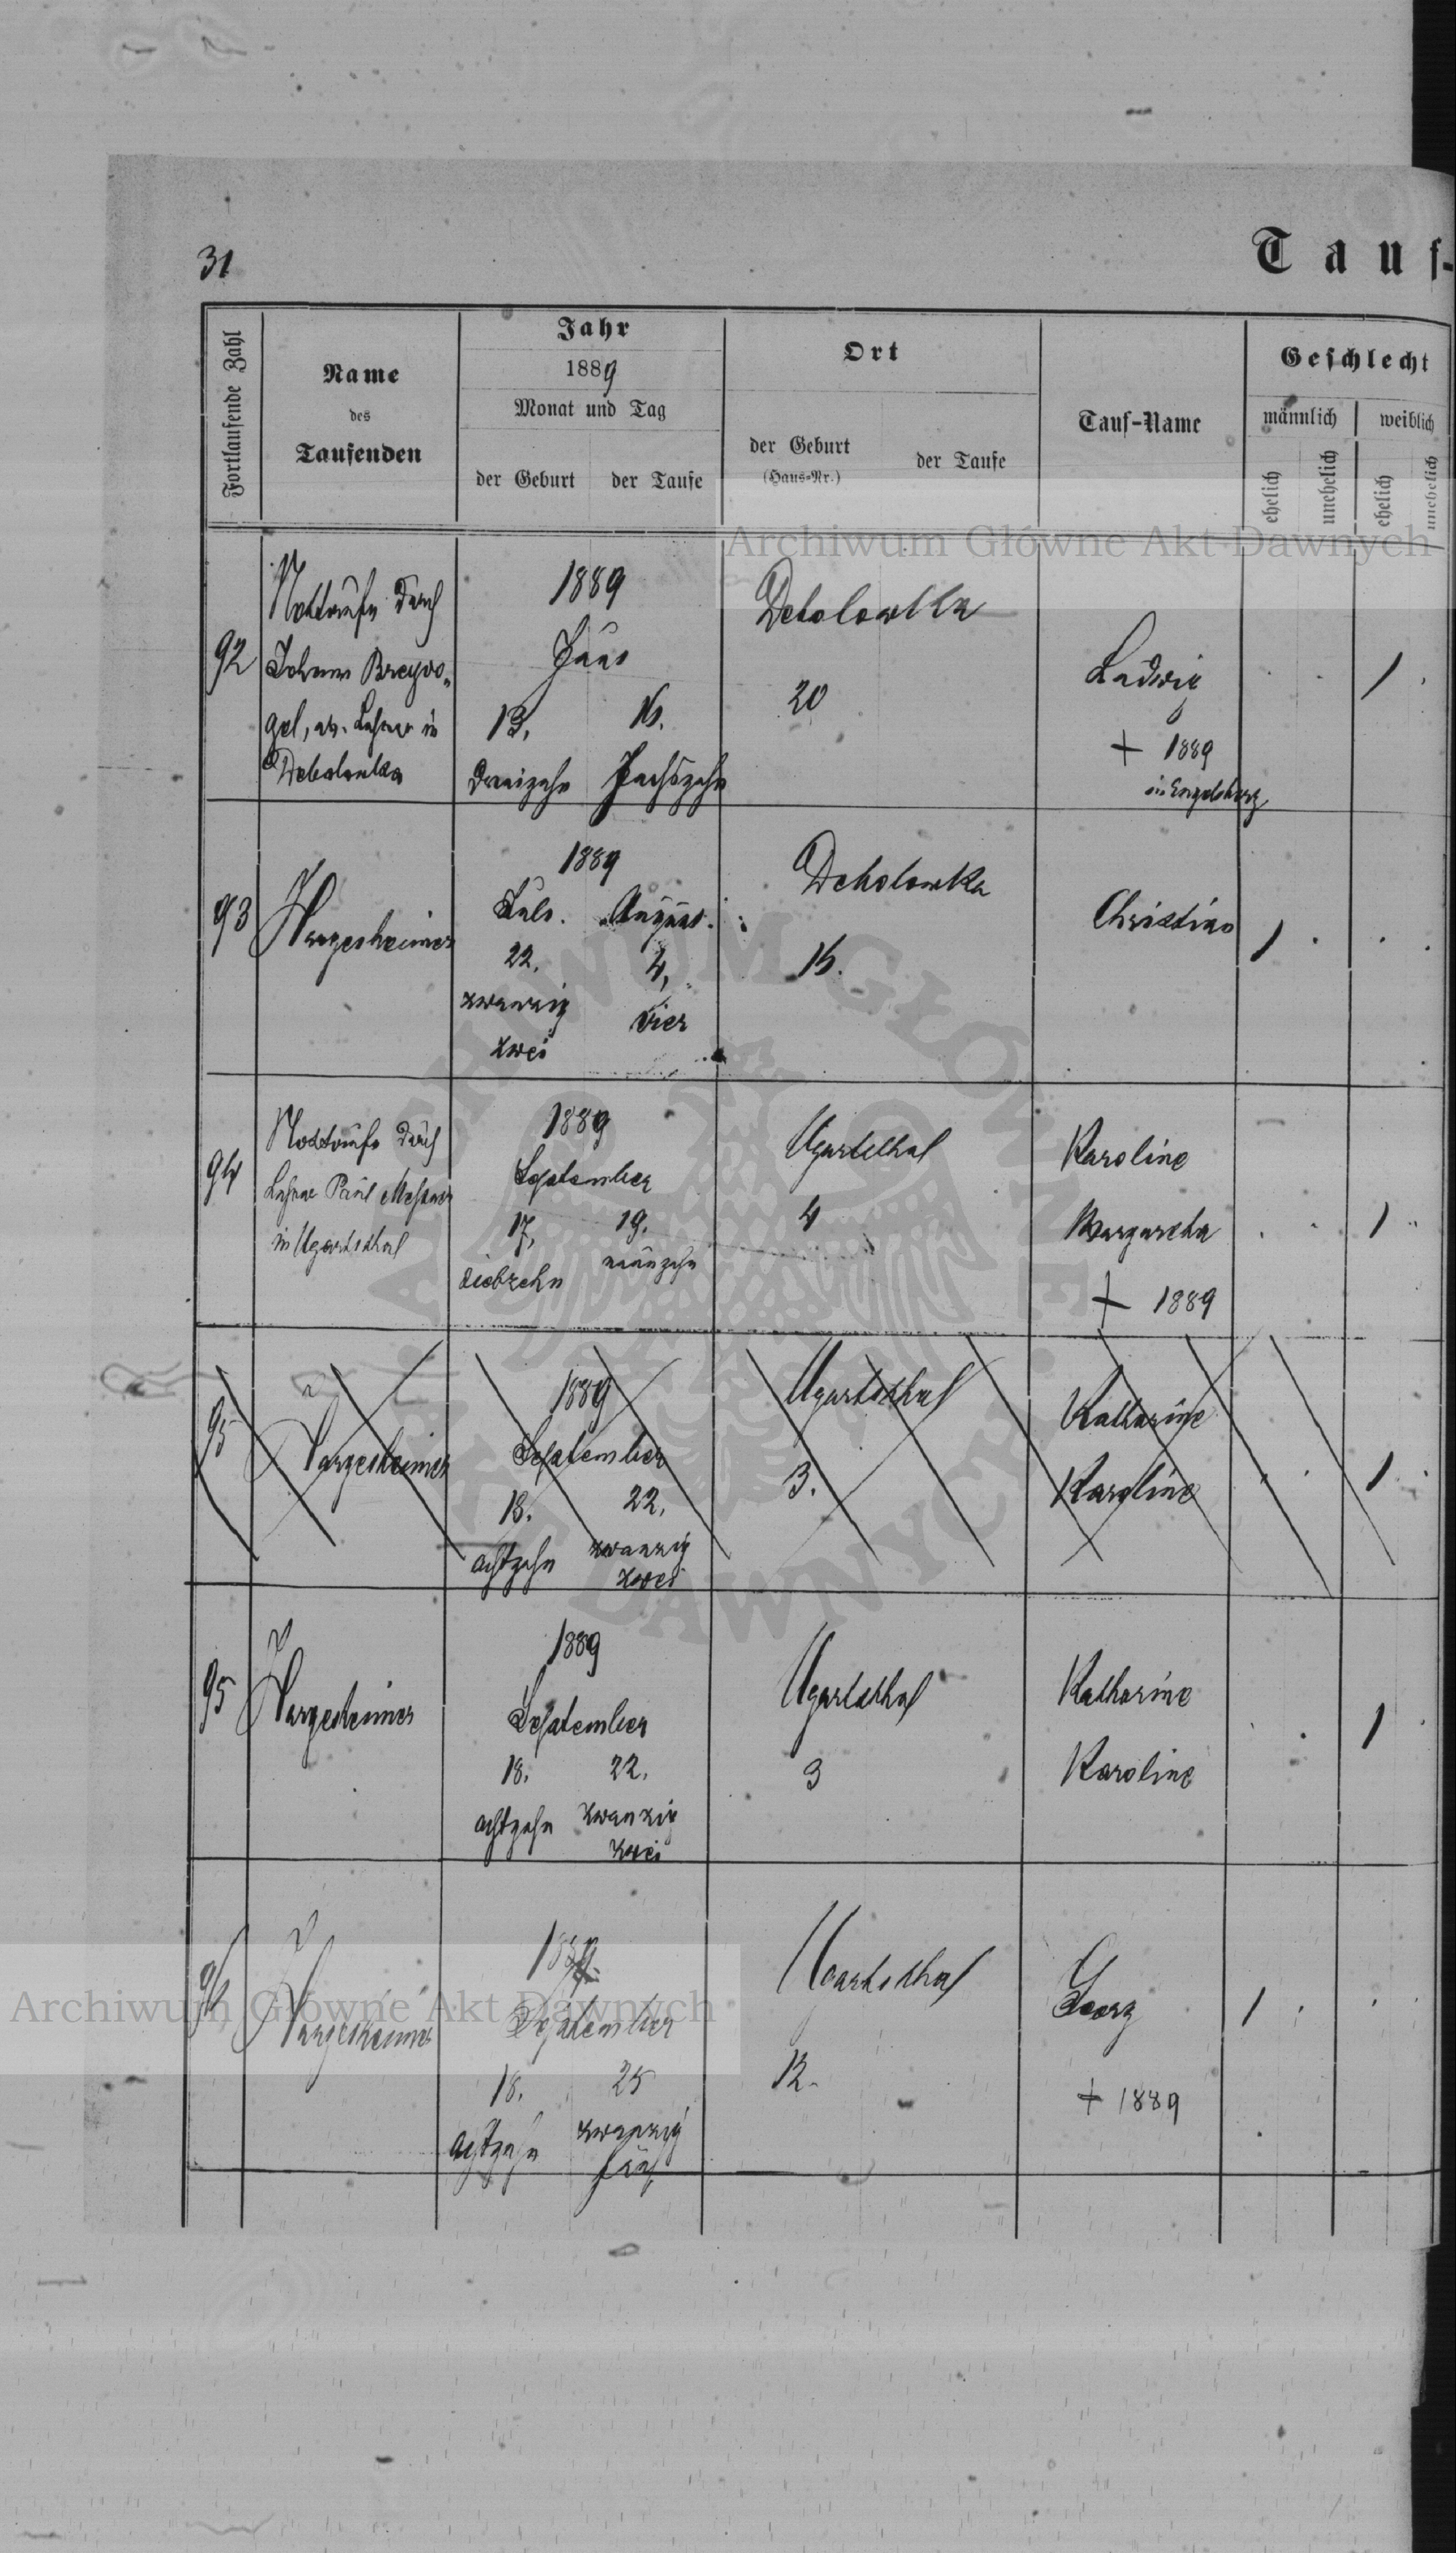 31
Tauf-
Fortlaufende Zahl
Name
des
Taufenden
Jahr
1889
Monat und Tag
der Geburt
der Taufe
Ort
der Geburt
(Haus-Nr.)
der Taufe
Tauf-Name
Geschlecht
männlich
weiblich
ehelich
unehelich
ehelich
unehelich
Archiwum Główne Akt Dawnych
92
Nottaufe durch
Johann Breyvo-
gel, ev. Lehrer in
Debolowka
1889
13.
16.
dreizehn
sechszehn
Debolowka
20
Ludwig
+ 1889
in Engelsberg
1
93
Hargesheimer
1889
Juli.
August.
22.
4.
zwanzig
zwei
vier
Debolowka
16.
Christian
1
94
Nottaufe durch
Lehrer Paul
in Ugartsthal
1889
September
17,
19.
siebzehn
neunzehn
Ugartsthal
4
Karoline
Margaretha
+ 1889
1
95
Hargesheimer
1889
September
18.
22.
achtzehn
zwanzig
zwei
Ugartsthal
3.
Katharine
Karoline
1
95
Hargesheimer
1889
September
18.
22.
achtzehn
zwanzig
zwei
Ugartsthal
3
Katharine
Karoline
1
96
Hargesheimer
1889.
September
18.
25
achtzehn
zwanzig
fünf
Ugartsthal
12.
Georg
+ 1889
1
Archiwum Główne Akt Dawnych
ARCHIWUM GŁÓWNE AKT DAWNYCH